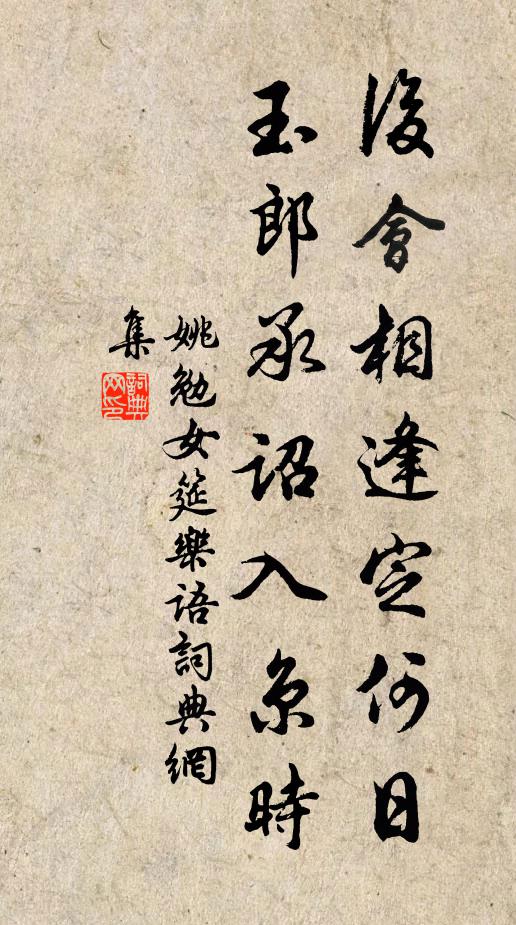 後會相逢定何日
玉郎承詔入京時
姚勉女筵樂語詞典網
集
詞典
网印